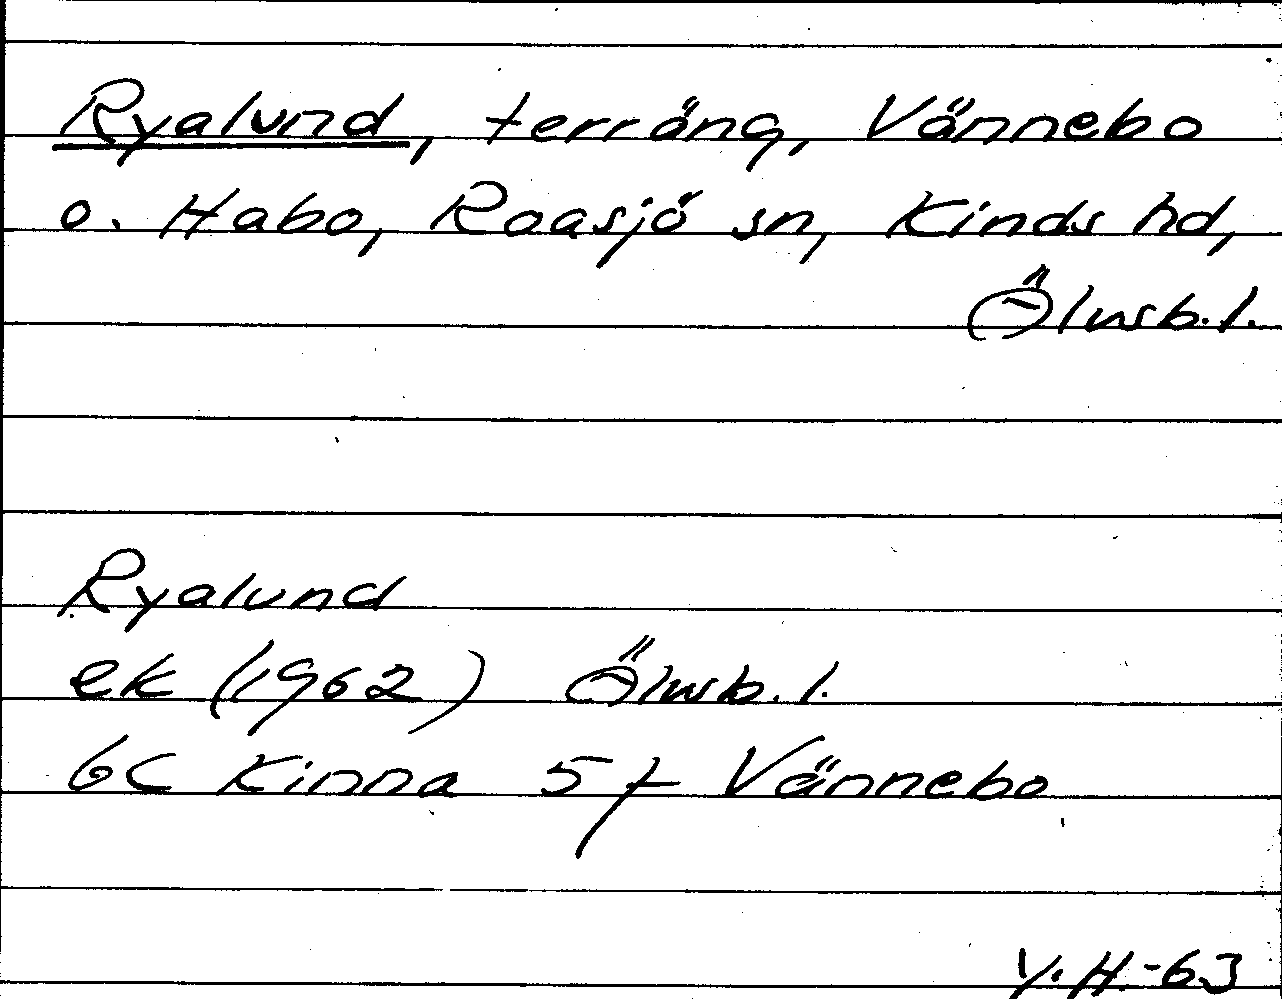 Ryalund, terräng, Vännebo
o. Habo, Roasjö sn, Kinds hd,
Älvsb. l.
Ryalund
ek (1962) Älvsb. l.
6C Kinna 5f Vännebo
V.H.-63